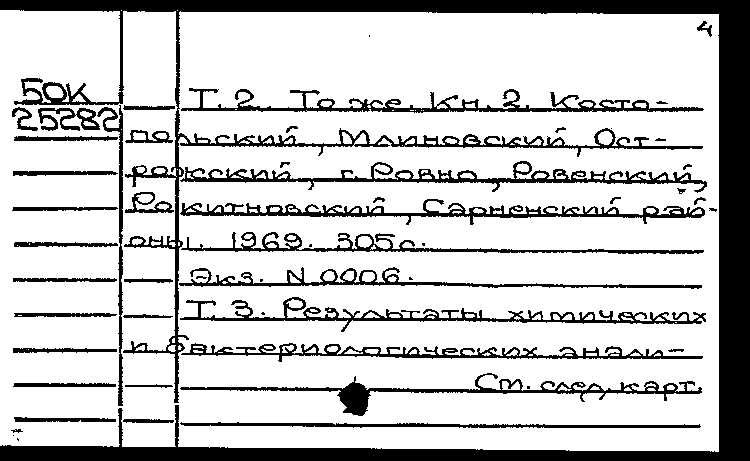 4
50К
25282
Т. 2. То же. Кн. 2. Косто-
польский, Млиновский, Ост-
рожский, г. Ровно, Ровенский,
Рокитновский, Сарненский рай-
оны. 1969. 305с.
Экз. N 0006.
Т. 3. Результаты химических
и бактериологических анали-
См. след. карт.